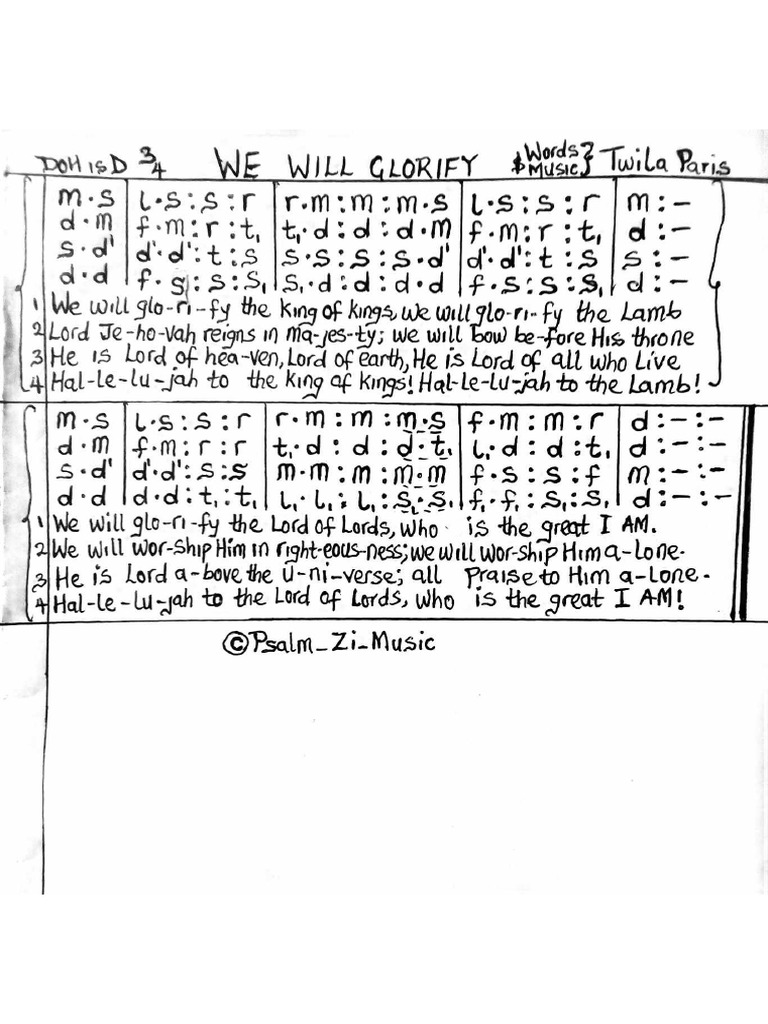 DOH is D 3/4 WE WILL GLORIFY Words & Music } Twila Paris
m.s | l.s:s:r | r.m:m:m.s | l.s:s:r | m:-
d.m | f.m:r:t, | t,.d:d:d.m | f.m:r:t, | d:-
s.d' | d'.d':t:s | s.s:s:s.d' | d'.d':t:s | s:-
d.d | f.s:s:s, | s,.d:d:d.d | f.s:s:s, | d:-
1 We will glo-ri-fy the king of kings, we will glo-ri-fy the Lamb
2 Lord Je-ho-vah reigns in ma-jes-ty; we will bow be-fore His throne
3 He is Lord of hea-ven, Lord of earth, He is Lord of all who Live
4 Hal-le-lu-jah to the king of kings! Hal-le-lu-jah to the Lamb!
m.s | l.s:s:r | r.m:m:m.s | f.m:m:r | d:-:-
d.m | f.m:r:r | t,.d:d:d.t, | l,.d:d:t, | d:-:-
s.d' | d'.d':s:s | m.m:m:m.m | f.s:s:f | m:-:-
d.d | d.d:t,:t, | l,.l,:l,:s,.s, | f,.f,:s,:s, | d:-:-
1 We will glo-ri-fy the Lord of Lords, who is the great I AM.
2 We will wor-ship Him in right-eous-ness; we will wor-ship Him a-lone.
3 He is Lord a-bove the u-ni-verse; all Praise to Him a-lone.
4 Hal-le-lu-jah to the Lord of Lords, who is the great I AM!
©Psalm_Zi_Music